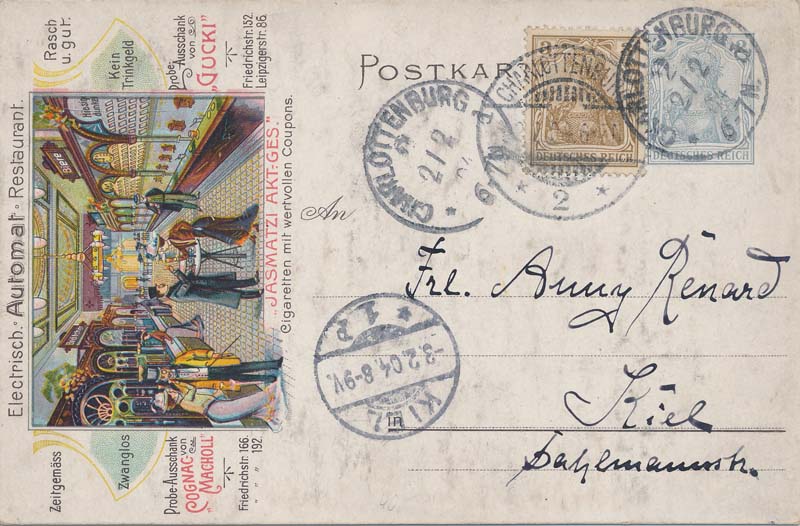 Rasch
u. gut.
Kein
Trinkgeld
Probe-
Ausschank
von
„GUCKI“
Friedrichstr. 152.
Leipzigerstr. 86.
Electrisch. Automat-Restaurant.
Biere
„JASMATZI AKT-GES.“
Cigaretten mit wertvollen Coupons.
Zeitgemäss
Zwanglos
Probe-Ausschank
COGNAC von
„MACHOLL“
Friedrichstr. 166.
„ „ „ 192.
POSTKAR
CHARLOTTENBURG 2
2/2
6-7N.
DEUTSCHES REICH
CHARLOTTENBURG 2
2/2
04
6-7N.
CHARLOTTENB
2
DEUTSCHES REICH
An
Frl. Anny Renard
KIEL
-3.2.04.8-9V.
* 1 P.
in Kiel
Dahlmannstr.